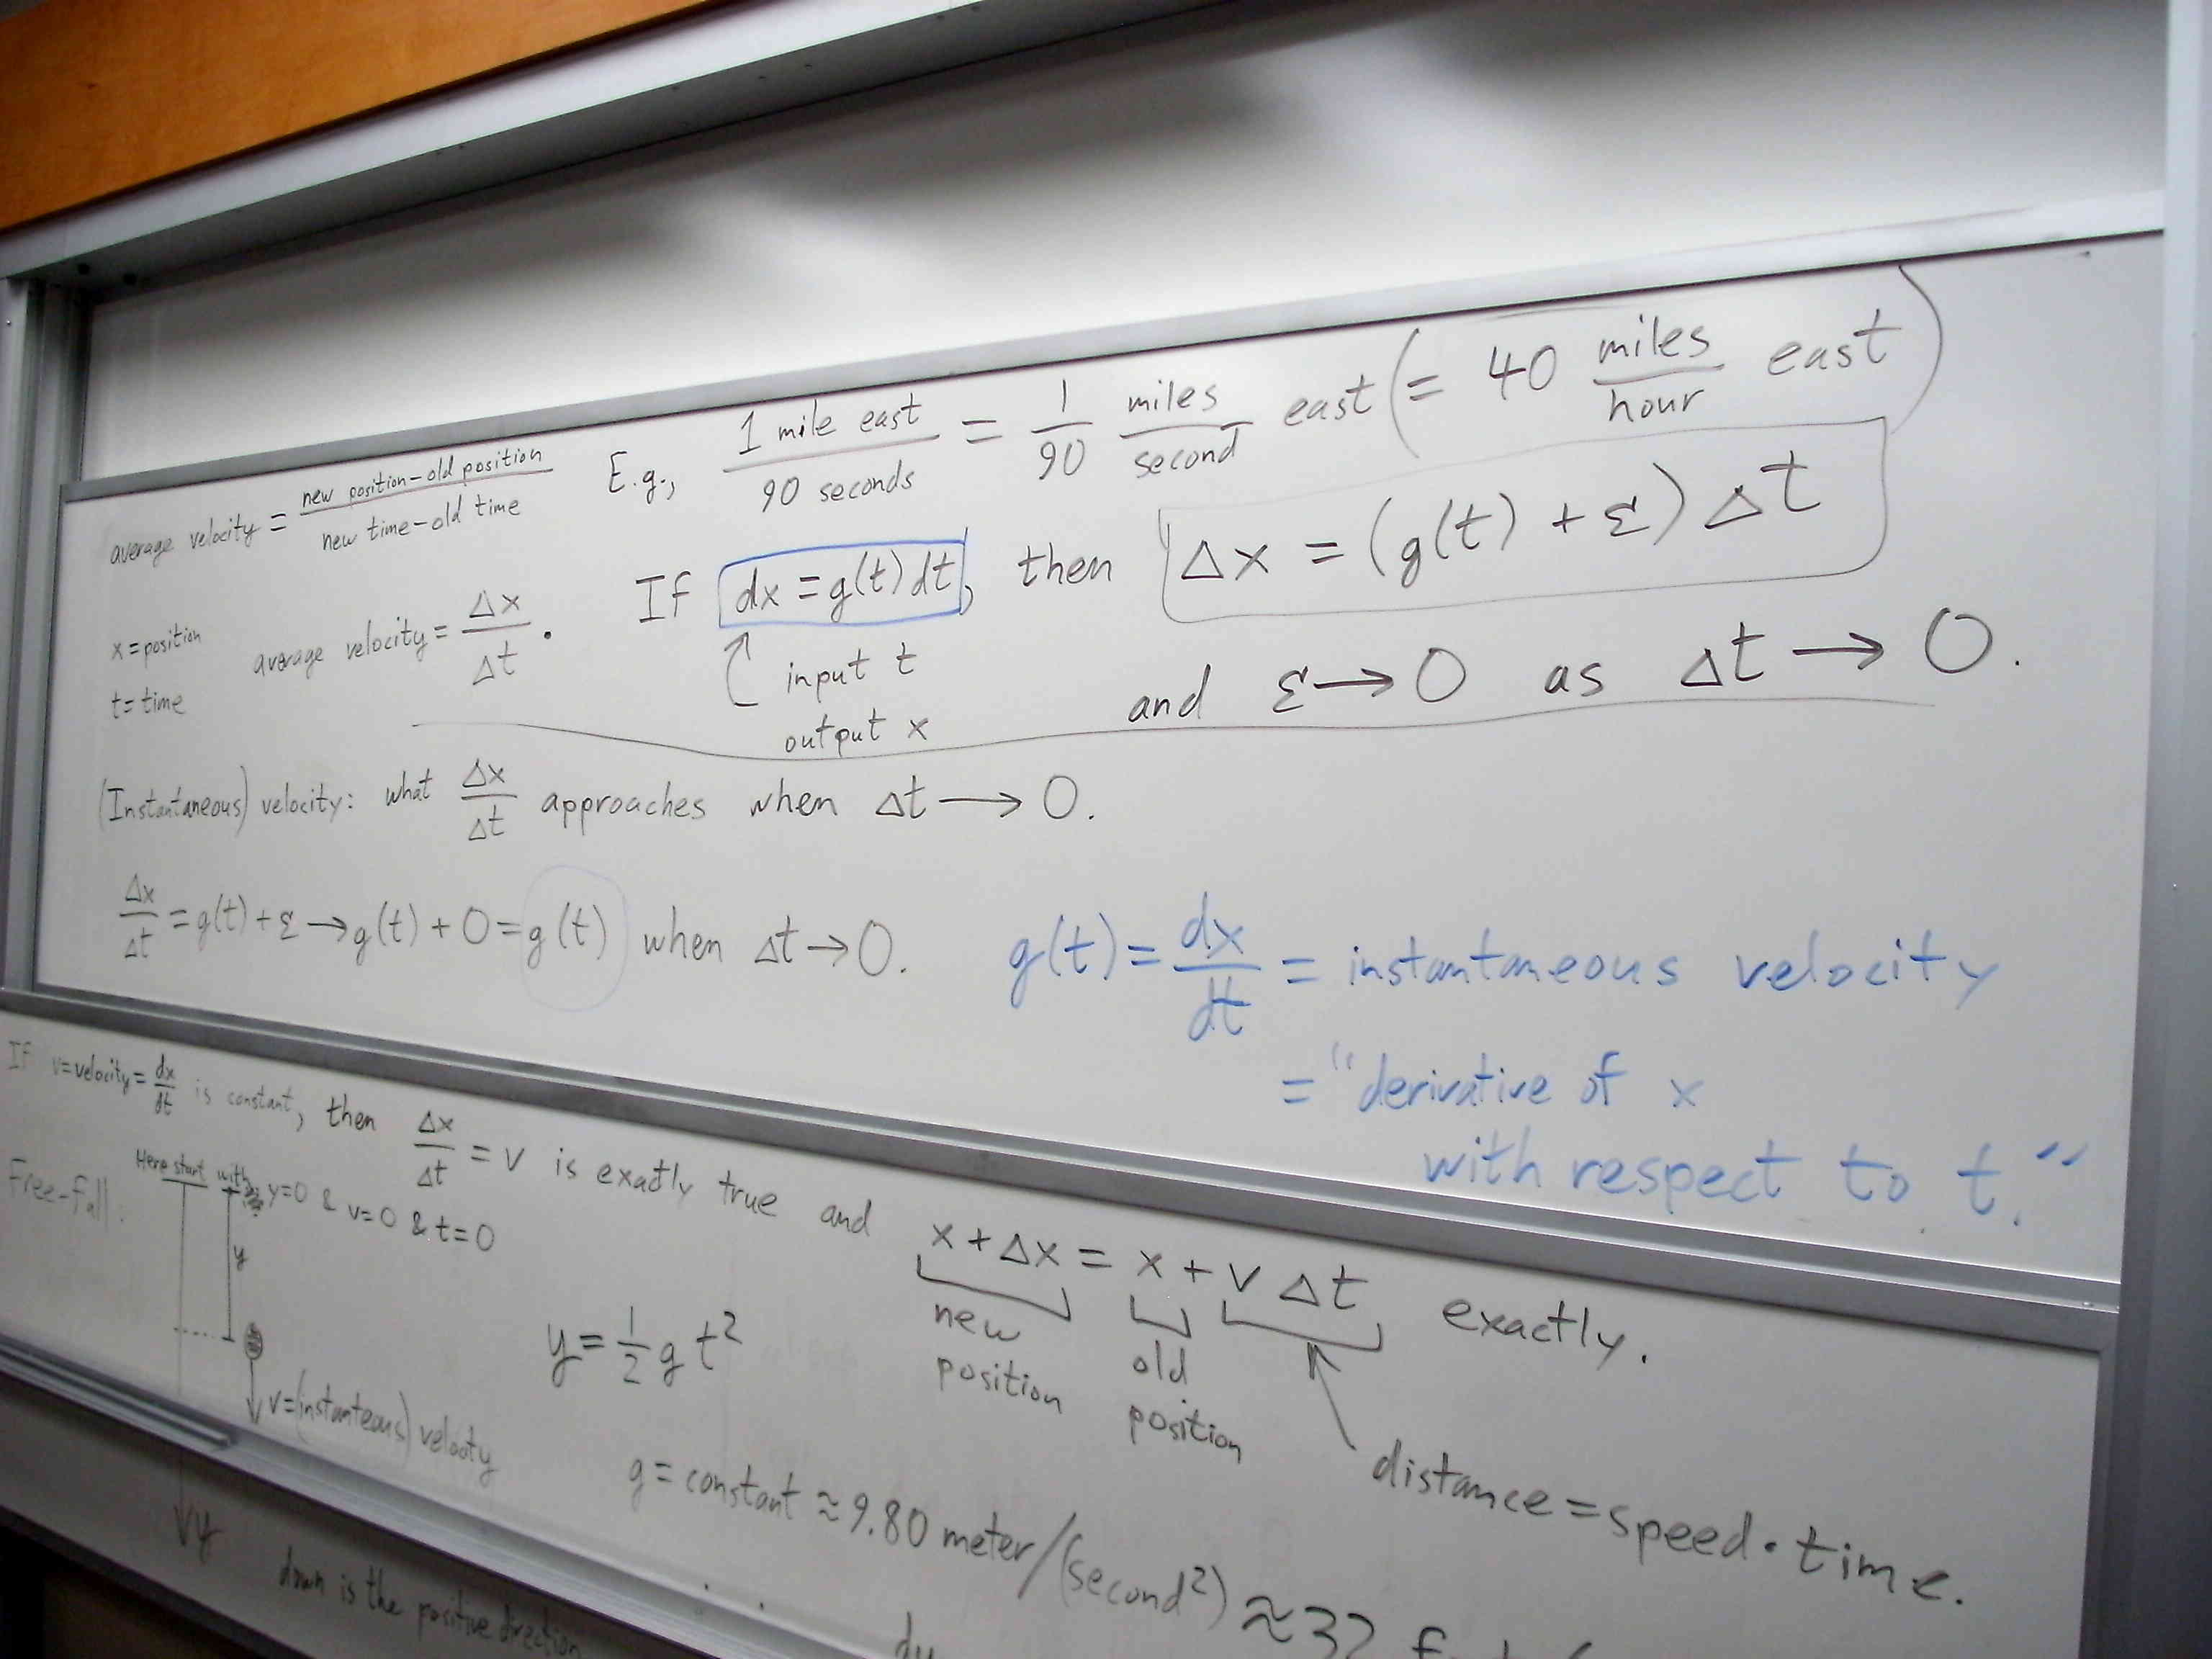 average velocity = (new position - old position)/(new time - old time) E.g., (1 mile east)/(90 seconds) = 1/90 miles/second east (= 40 miles/hour east)
x = position
t = time
average velocity = Δx/Δt. If dx = g(t) dt, then Δx = (g(t) + ε) Δt
input t
output x
and ε → 0 as Δt → 0.
(Instantaneous) velocity: what Δx/Δt approaches when Δt → 0.
Δx/Δt = g(t) + ε → g(t) + 0 = g(t) when Δt → 0.
g(t) = dx/dt = instantaneous velocity
= "derivative of x
with respect to t."
If v = velocity = dx/dt is constant, then Δx/Δt = v is exactly true and x + Δx = x + v Δt exactly.
new position
old position
distance = speed · time.
Free-fall:
Here start with y=0 & v=0 & t=0
y
v = (instanteous) velocity
y
down is the positive direction
y = 1/2 g t²
g = constant ≈ 9.80 meter/(second²) ≈ 32
dy